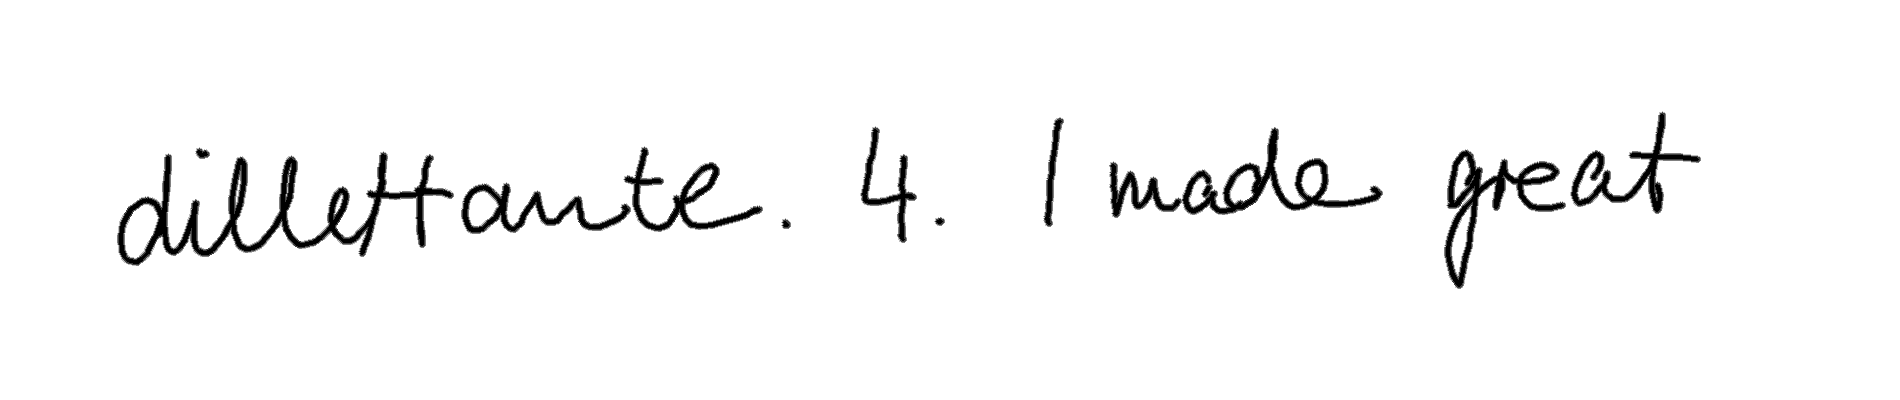 dillettante. 4. I made great